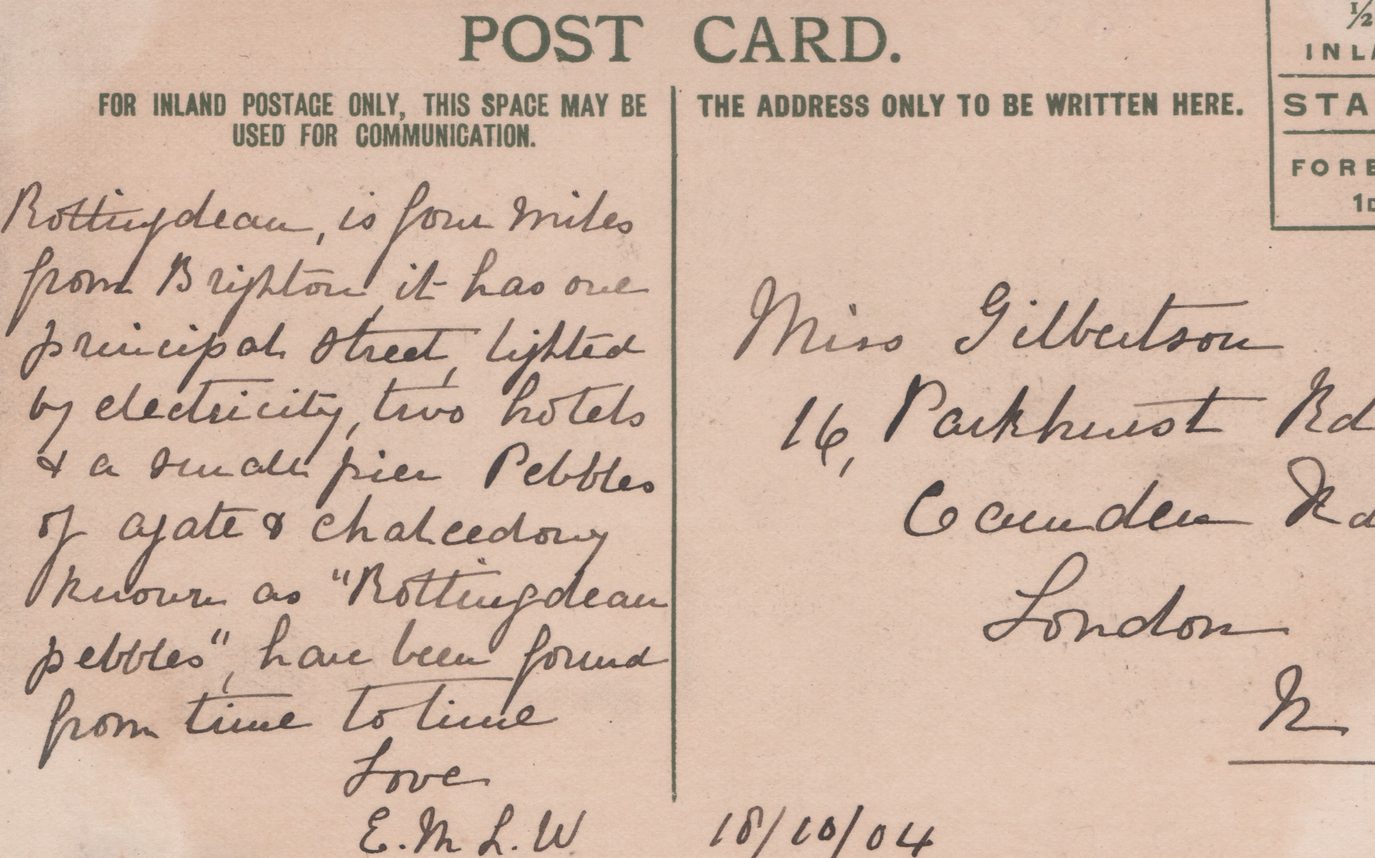 POST CARD.
FOR INLAND POSTAGE ONLY, THIS SPACE MAY BE
USED FOR COMMUNICATION.
THE ADDRESS ONLY TO BE WRITTEN HERE.
½
INLA
STA
FORE
1D
Rottingdean, is four miles
from Brighton it has one
principal street, lighted
by electricity, two hotels
& a small pier Pebbles
of agate & chalcedony
known as "Rottingdean
pebbles", have been found
from time to time
Love
E.M.L.W
Miss Gilbertson
16, Parkhurst Rd
Camden Rd
London
N
18/10/04